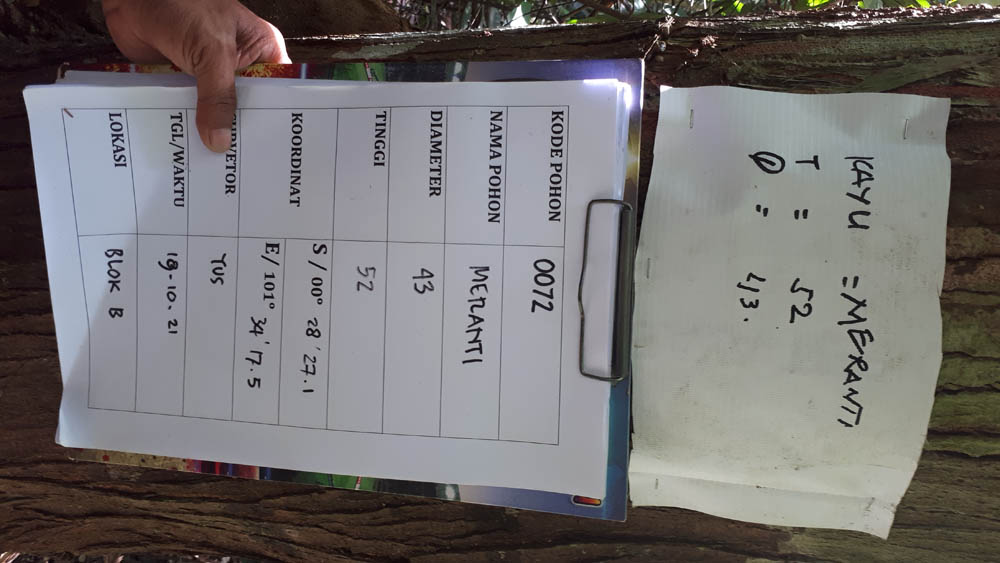 KAYU = MERANTI
T = 52
Ø = 43.
KODE POHON 0072
NAMA POHON MERANTI
DIAMETER 43
TINGGI 52
KOORDINAT S / 00° 28 ' 27.1
E/ 101° 34 ' 17.5
SURVEYOR YUS
TGL/WAKTU 19-10-21
LOKASI BLOK B